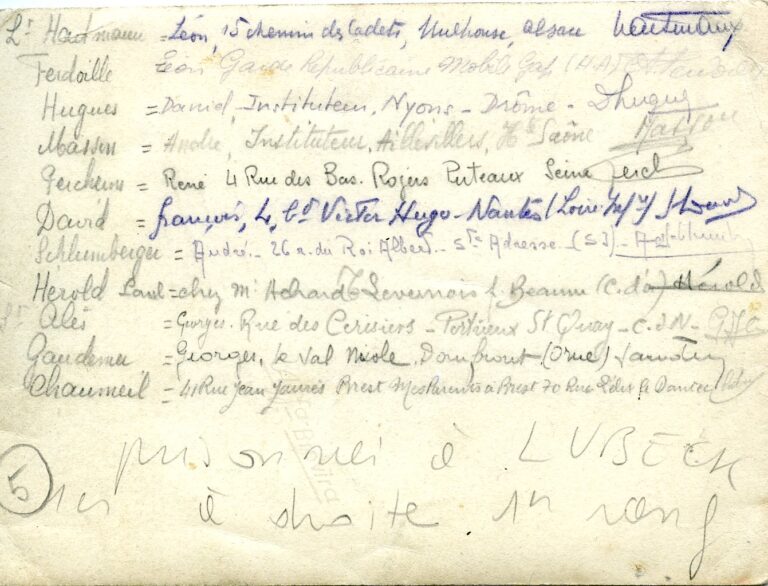 Lt Hartmann = Léon, 15 chemin des Cadets, Mulhouse, Alsace
Ferdoille Léon Garde Républicaine Mobile Gap (H.A)
Hugues = Daniel, Instituteur, Nyons - Drôme - DHugues
Masson = André, Instituteur, Aillevillers, Hte Saône Masson
= René 4 Rue des Bas. Rogers Puteaux Seine
David = françois, 4, bd Victor Hugo - Nantes (Loire Inf)
Schlumberger = André - 26 r. du Roi Albert - Ste Adresse - (S I) -
Hérold Paul = chez Mr Achard Levernois / Beaune (C. d'o) Hérold
Alès = Georges. Rue des Cerisiers - Portrieux St Quay - C. d. N -
= Georges, le Val Nicole. Domfront (Orne)
Chaumeil = 41 Rue Jean Jaurès Brest Mes Parents à Brest 70 Rue Félix le Dantec
5
prisonnier à LUBECK
à droite 1er rang